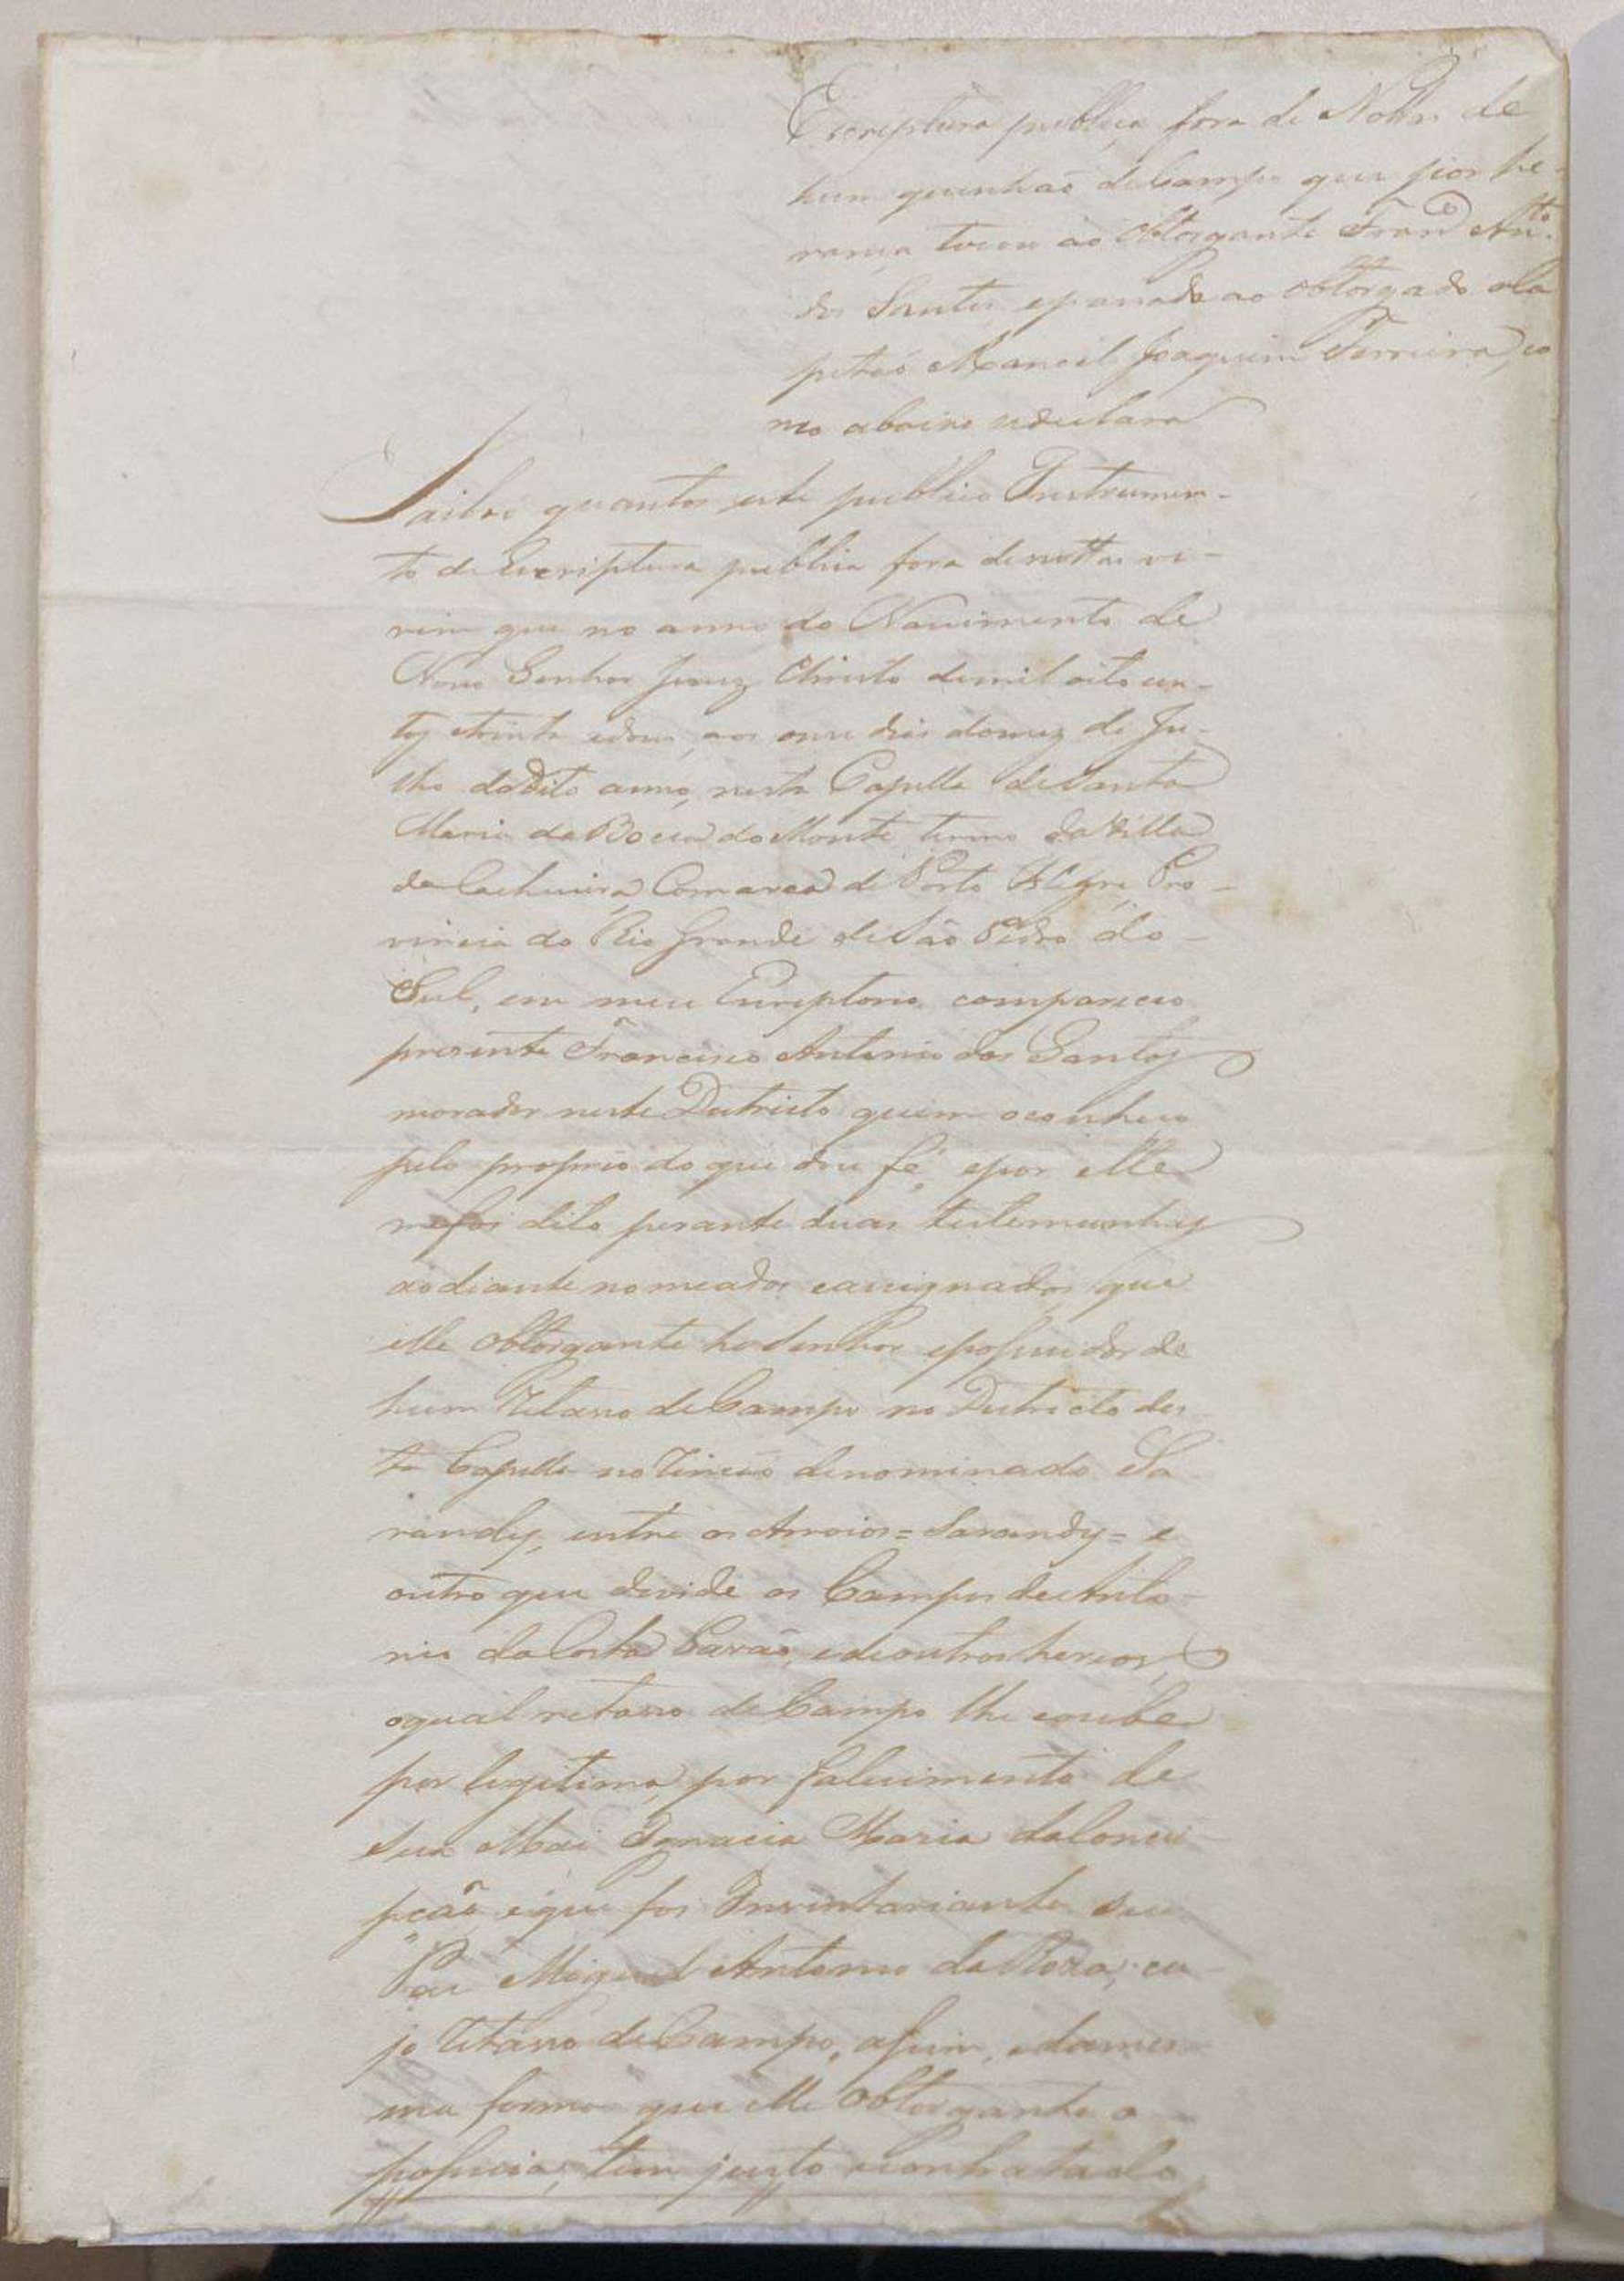 Escriptura publica fora de Nottas de
hum quinhaõ de Campo que por he-
rança tocou ao Obtorgante Fran.co An.to
dos Santos, epassada ao obtorgado oCa
pitaó Manoel Joaquim Ferreira, co
mo abaixo sedeclara
Saibaõ quantos este publico Instrumen-
to de Escriptura publica fora denottas vi-
rem que no anno do Nascimento de
Nosso Senhor Jesuz Christo demil oito cen-
tos etrinta edous, aos onze dias domez de Ju-
lho doDito anno, nesta Capella de Santa
Maria da Bocca do Monte termo da Villa
da Cachueira, Comarca de Porto Alegre, Pro-
vincia do Rio Grande de São Pedro do-
Sul, em meu Escriptorio compareceo
presente Francisco Antonio dos Santos
morador neste Destricto quem oconheço
pelo proprio do que dou fé, epor elle
mefoi dito perante duas testemunhas
aodiante nomeados eassignados, que
elle obtorgante he Senhor epossuidor de
hum Retasso de Campo no Destricto des-
ta Capella no Rincaõ denominado Sa-
randy, entre os Arroios = Sarandy = e
outro que devide os Campos de Anto-
nio da Costa Pavaõ, edeoutros hereos,
oqual retasso de Campo lhe coube
por legitima, por falecimento de
sua Mai Ignacia Maria daConcei-
pçaõ, eque foi Inventariante seu
Pai Miguel Antonio da Roza, cu-
jo Retasso de Campo, assim, edames-
ma forma que elle Obtorgante o
possuia, tem justo econtratado